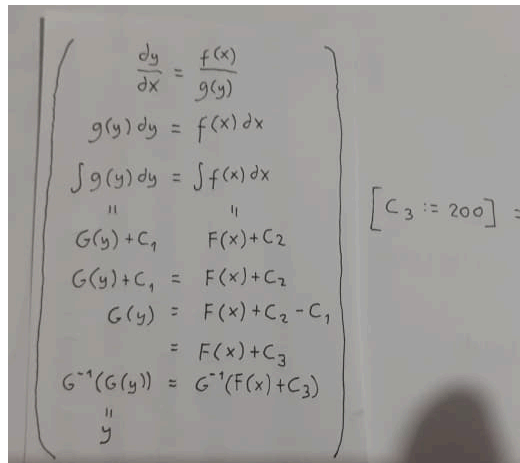 dy/dx = f(x)/g(y)
g(y) dy = f(x) dx
∫g(y) dy = ∫f(x) dx
" "
G(y)+C₁ F(x)+C₂
G(y)+C₁ = F(x)+C₂
G(y) = F(x)+C₂-C₁
= F(x)+C₃
G⁻¹(G(y)) = G⁻¹(F(x)+C₃)
"
y
[C₃ := 200] =